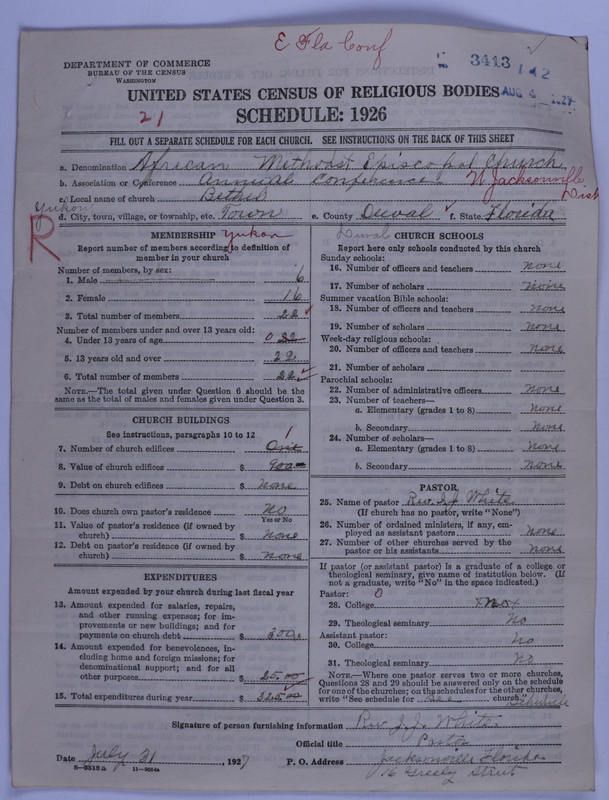 E Fla Conf
DEPARTMENT OF COMMERCE
BUREAU OF THE CENSUS
WASHINGTON
3413 1 42
AUG 1927
UNITED STATES CENSUS OF RELIGIOUS BODIES
21
SCHEDULE: 1926
FILL OUT A SEPARATE SCHEDULE FOR EACH CHURCH. SEE INSTRUCTIONS ON THE BACK OF THIS SHEET
a. Denomination African Methodist Episcopal Church
b. Association or Conference Annual Conference N Jacksonville Dist
c. Local name of church Bethel
Yukon
d. City, town, village, or township, etc. Town e. County Duval f. State Florida
R
MEMBERSHIP Yukon
Report number of members according to definition of
member in your church
Number of members, by sex:
1. Male 6
2. Female 16
3. Total number of members 22
Number of members under and over 13 years old:
4. Under 13 years of age 0 22
5. 13 years old and over 22
6. Total number of members 22
NOTE.—The total given under Question 6 should be
same as the total of males and females given under Question 3.
CHURCH BUILDINGS
See instructions, paragraphs 10 to 12 1
7. Number of church edifices One
8. Value of church edifices $ 900
9. Debt on church edifices $ None
10. Does church own pastor's residence No
Yes or No
11. Value of pastor's residence (if owned by
church) $ none
12. Debt on pastor's residence (if owned by
church) $ none
EXPENDITURES
Amount expended by your church during last fiscal year
13. Amount expended for salaries, repairs,
and other running expenses; for im-
provements or new buildings; and for
payments on church debt $ 300
14. Amount expended for benevolences, in-
cluding home and foreign missions; for
denominational support; and for all
other purposes $ 25.00
15. Total expenditures during year $ 325.00
Duval
CHURCH SCHOOLS
Report here only schools conducted by this church
Sunday schools:
16. Number of officers and teachers none
17. Number of scholars none
Summer vacation Bible schools:
18. Number of officers and teachers none
19. Number of scholars none
Week-day religious schools:
20. Number of officers and teachers none
21. Number of scholars
Parochial schools:
22. Number of administrative officers None
23. Number of teachers—
a. Elementary (grades 1 to 8) None
b. Secondary None
24. Number of scholars—
a. Elementary (grades 1 to 8) None
b. Secondary None
PASTOR
25. Name of pastor Rev. J. J. White
(If church has no pastor, write "None")
26. Number of ordained ministers, if any, em-
ployed as assistant pastors none
27. Number of other churches served by the
pastor or his assistants none
If pastor (or assistant pastor) is a graduate of a college or
theological seminary, give name of institution below. (If
not a graduate, write "No" in the space indicated.)
Pastor: 0
28. College
29. Theological seminary No
Assistant pastor:
30. College No
31. Theological seminary No
NOTE.—Where one pastor serves two or more churches,
Questions 28 and 29 should be answered only on the schedule
for one of the churches; on the schedules for the other churches,
write "See schedule for church."
Schedule
Signature of person furnishing information Rev. J. J. White
Official title Pastor
Date July 21, 1927 P. O. Address Jacksonville Florida
8—3518a 11—9204a 16 Greely Street